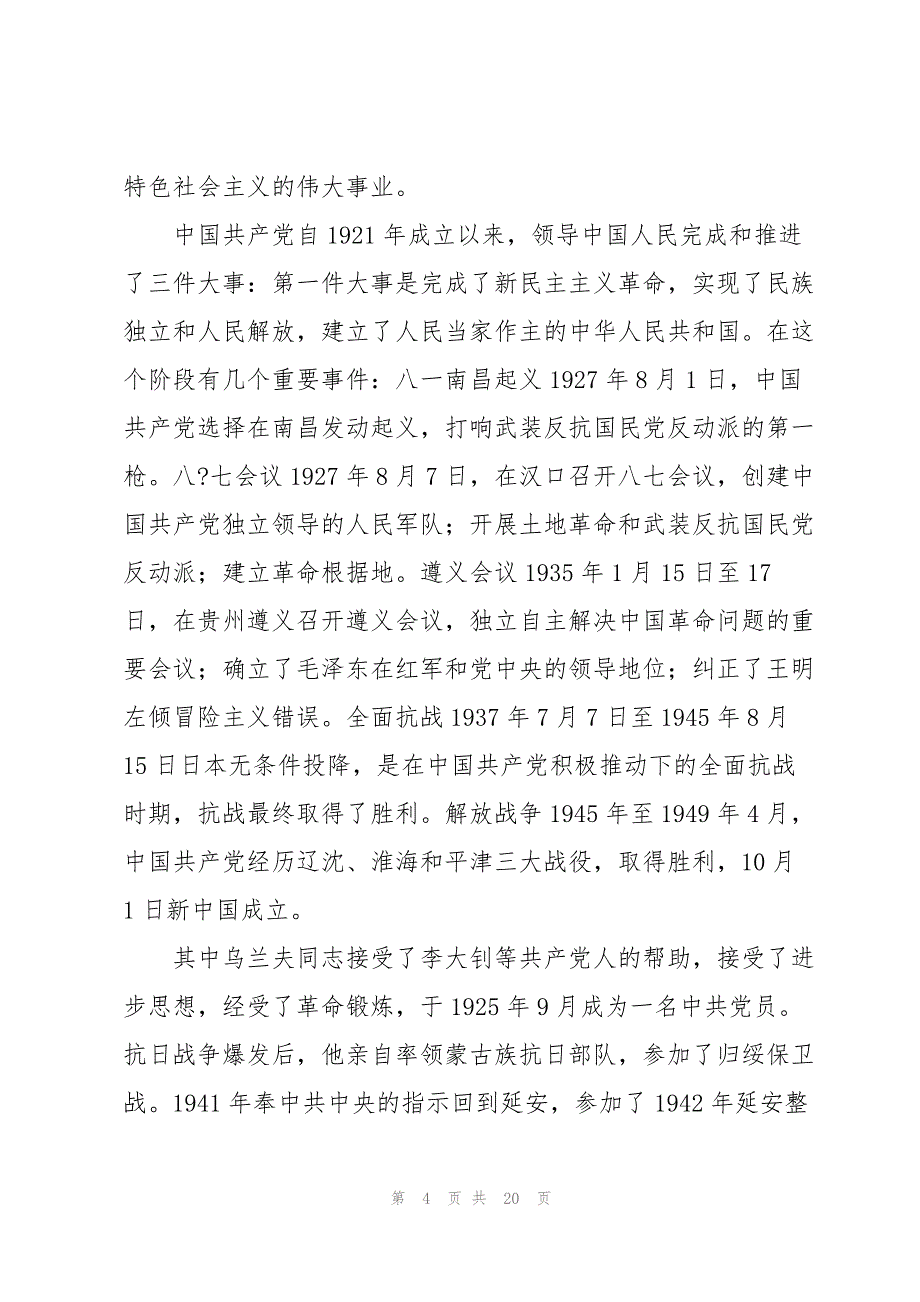 特色社会主义的伟大事业。
中国共产党自 1921 年成立以来，领导中国人民完成和推进
了三件大事：第一件大事是完成了新民主主义革命，实现了民族
独立和人民解放，建立了人民当家作主的中华人民共和国。在这
个阶段有几个重要事件：八一南昌起义 1927 年 8 月 1 日，中国
共产党选择在南昌发动起义，打响武装反抗国民党反动派的第一
枪。八?七会议 1927 年 8 月 7 日，在汉口召开八七会议，创建中
国共产党独立领导的人民军队；开展土地革命和武装反抗国民党
反动派；建立革命根据地。遵义会议 1935 年 1 月 15 日至 17
日，在贵州遵义召开遵义会议，独立自主解决中国革命问题的重
要会议；确立了毛泽东在红军和党中央的领导地位；纠正了王明
左倾冒险主义错误。全面抗战 1937 年 7 月 7 日至 1945 年 8 月
15 日日本无条件投降，是在中国共产党积极推动下的全面抗战
时期，抗战最终取得了胜利。解放战争 1945 年至 1949 年 4 月，
中国共产党经历辽沈、淮海和平津三大战役，取得胜利，10 月
1 日新中国成立。
其中乌兰夫同志接受了李大钊等共产党人的帮助，接受了进
步思想，经受了革命锻炼，于 1925 年 9 月成为一名中共党员。
抗日战争爆发后，他亲自率领蒙古族抗日部队，参加了归绥保卫
战。1941 年奉中共中央的指示回到延安，参加了 1942 年延安整
第 4 页 共 20 页